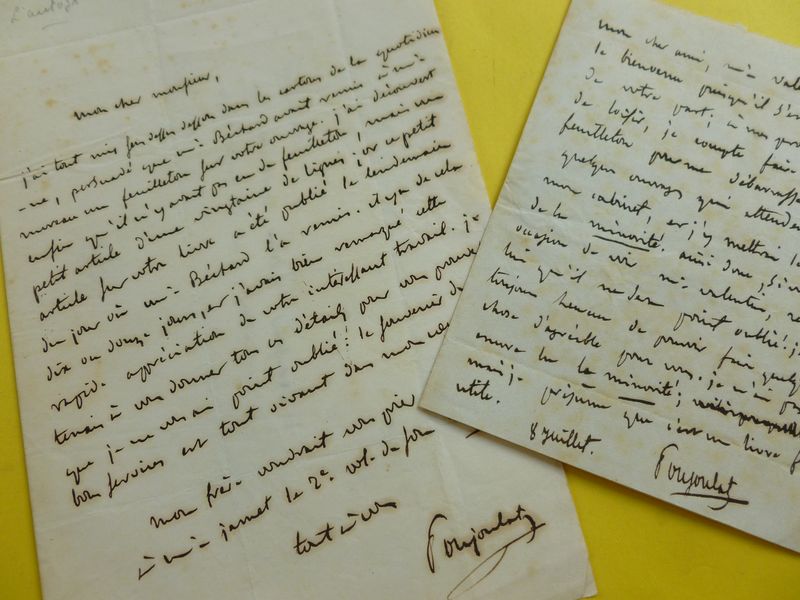 L'autogr
mon cher monsieur,
j'ai tout mis sens dessus dessous dans les cartons de la quotidien
-ne, persuadé que mr Béchard avait remis à mr
mureau un feuilleton sur votre ouvrage. j'ai découvert
enfin qu'il n'y avait pas eu de feuilleton, mais un
petit article d'une vingtaine de lignes; or ce petit
article sur votre livre a été publié le lendemain
du jour où mr Béchard l'a remis. il y a de cela
dix ou douze jours, et j'avais bien remarqué cette
rapide appréciation de votre intéressant travail. je
tenais à vous donner tous ces détails pour vous prouver
que je ne vous ai point oublié; le souvenir de
bons services est tout vivant dans mon coeu
mon frère voudrait vous prier
à mr jannet le 2e vol. de son
tout à vous
Poujoulat
mon cher ami, mr valen
le bienvenu puisqu'il s'est
de votre part; à mes prem
de loisir, je compte faire
feuilleton pour me débarrasser
quelques ouvrages qui attendent
mon cabinet, et j'y mettrai le
de la minorité. ainsi donc, si vou
occasion de voir mr valentin,
lui qu'il ne sera point oublié; je
toujours heureux de pouvoir faire quelque
chose d'agréable pour vous. je n'ai pas
encore lu la minorité;
mais je présume que c'est un livre
utile.
8 juillet.
Poujoulat